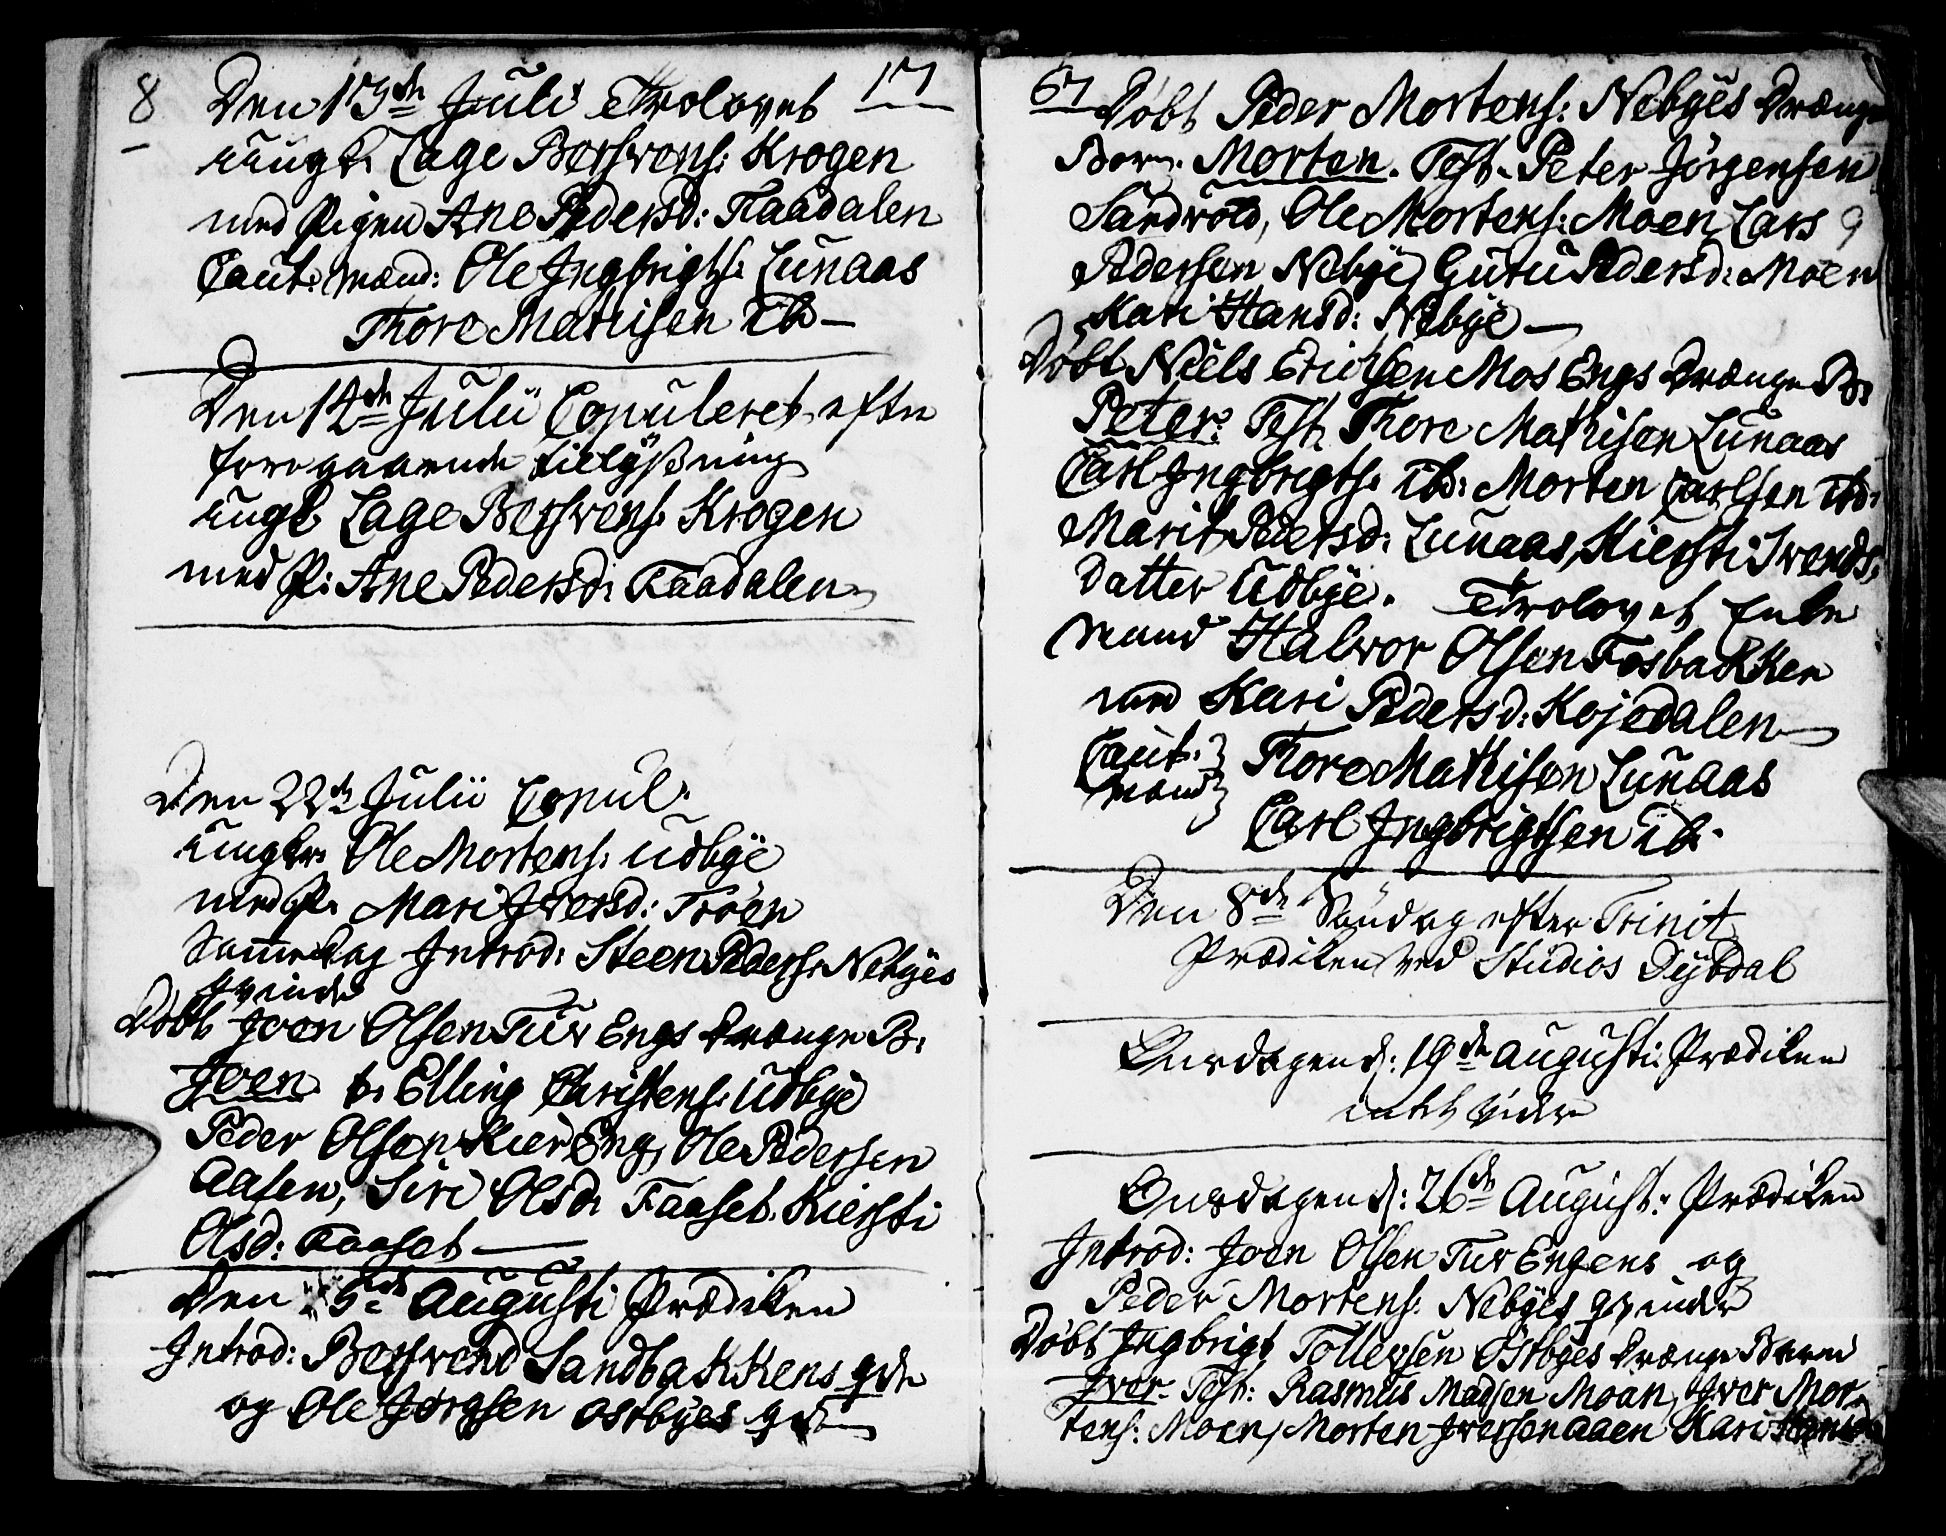 8
17
Den 13de Julii Trolovet
ungk. Lage Bersvens: Krogen
med Pigen Ane Pedersd: Kaadalen
Caut: Mænd: Ole Ingbrigts: Lunaas
Thore Mathisen ib —
Den 12de Julii Copuleret efter
foregaaende tillysning
ungk Lage Bersvens: Krogen
med P: Ane Pedersd: Kaadalen
Den 22de Julii Copul:
ungkr. Ole Mortens: Udbye
med P. Mari Iversd: Troen
Samedag Introd: Steen Peders: Nebyes
qvinde
Döbt Joen Olsen Tur Engs Drænge B:
Joen. t. Elling Christens: Udbye
Peder Olsen Kier Eng, Ole Pedersen
Aasen, Siri Olsd: Faaset. Kiersti
Olsd: Faaset —
Den 5de Augusti Prædiken
Introd: Bersvend Sandbakkens qde
og Ole Jørgsen Ostbyes qde
67
Döbt Peder Mortens: Nebyes Drænge
Barn. Morten. Test. Peter Jörgensen
Sandvold, Ole Mortens: Moen, Lars
9
Pedersen Nebye, Guru Pedersd: Moen
Kari Hansd: Nebye —
Döbt Niels Erichsen Mos Engs Drænge B:
Peter. Test. Thore Mathisen Lunaas
Carl Ingbrigts. ibd: Morten Carlsen ibd:
Marit Pedersd: Lunaas, Kiersti Svends
Datter Udbye. Trolovet Enke
Mand Halvor Olsen Fosbakken
med Kari Pedersd: Kojedalen
Caut: Thore Mathisen Lunaas
Mænd Carl Ingbrigtsen ib.
Den 8de Söndag efter Trinit
Prædiken ved Studios Dybdal
Onsdagen d: 19de Augusti Prædiken
intet videre
Onsdagen d: 26de August: Prædiken
Introd: Joen Olsen Tur Engens og
Peder Mortens: Nebyes qvinder
Döbt Ingbrigt Tollefsen Östbyes Drænge Barn
Iver. Test: Rasmus Madsen Moan, Iver Mor-
tens: Moen, Morten Iversen Aaen Kari Hansd